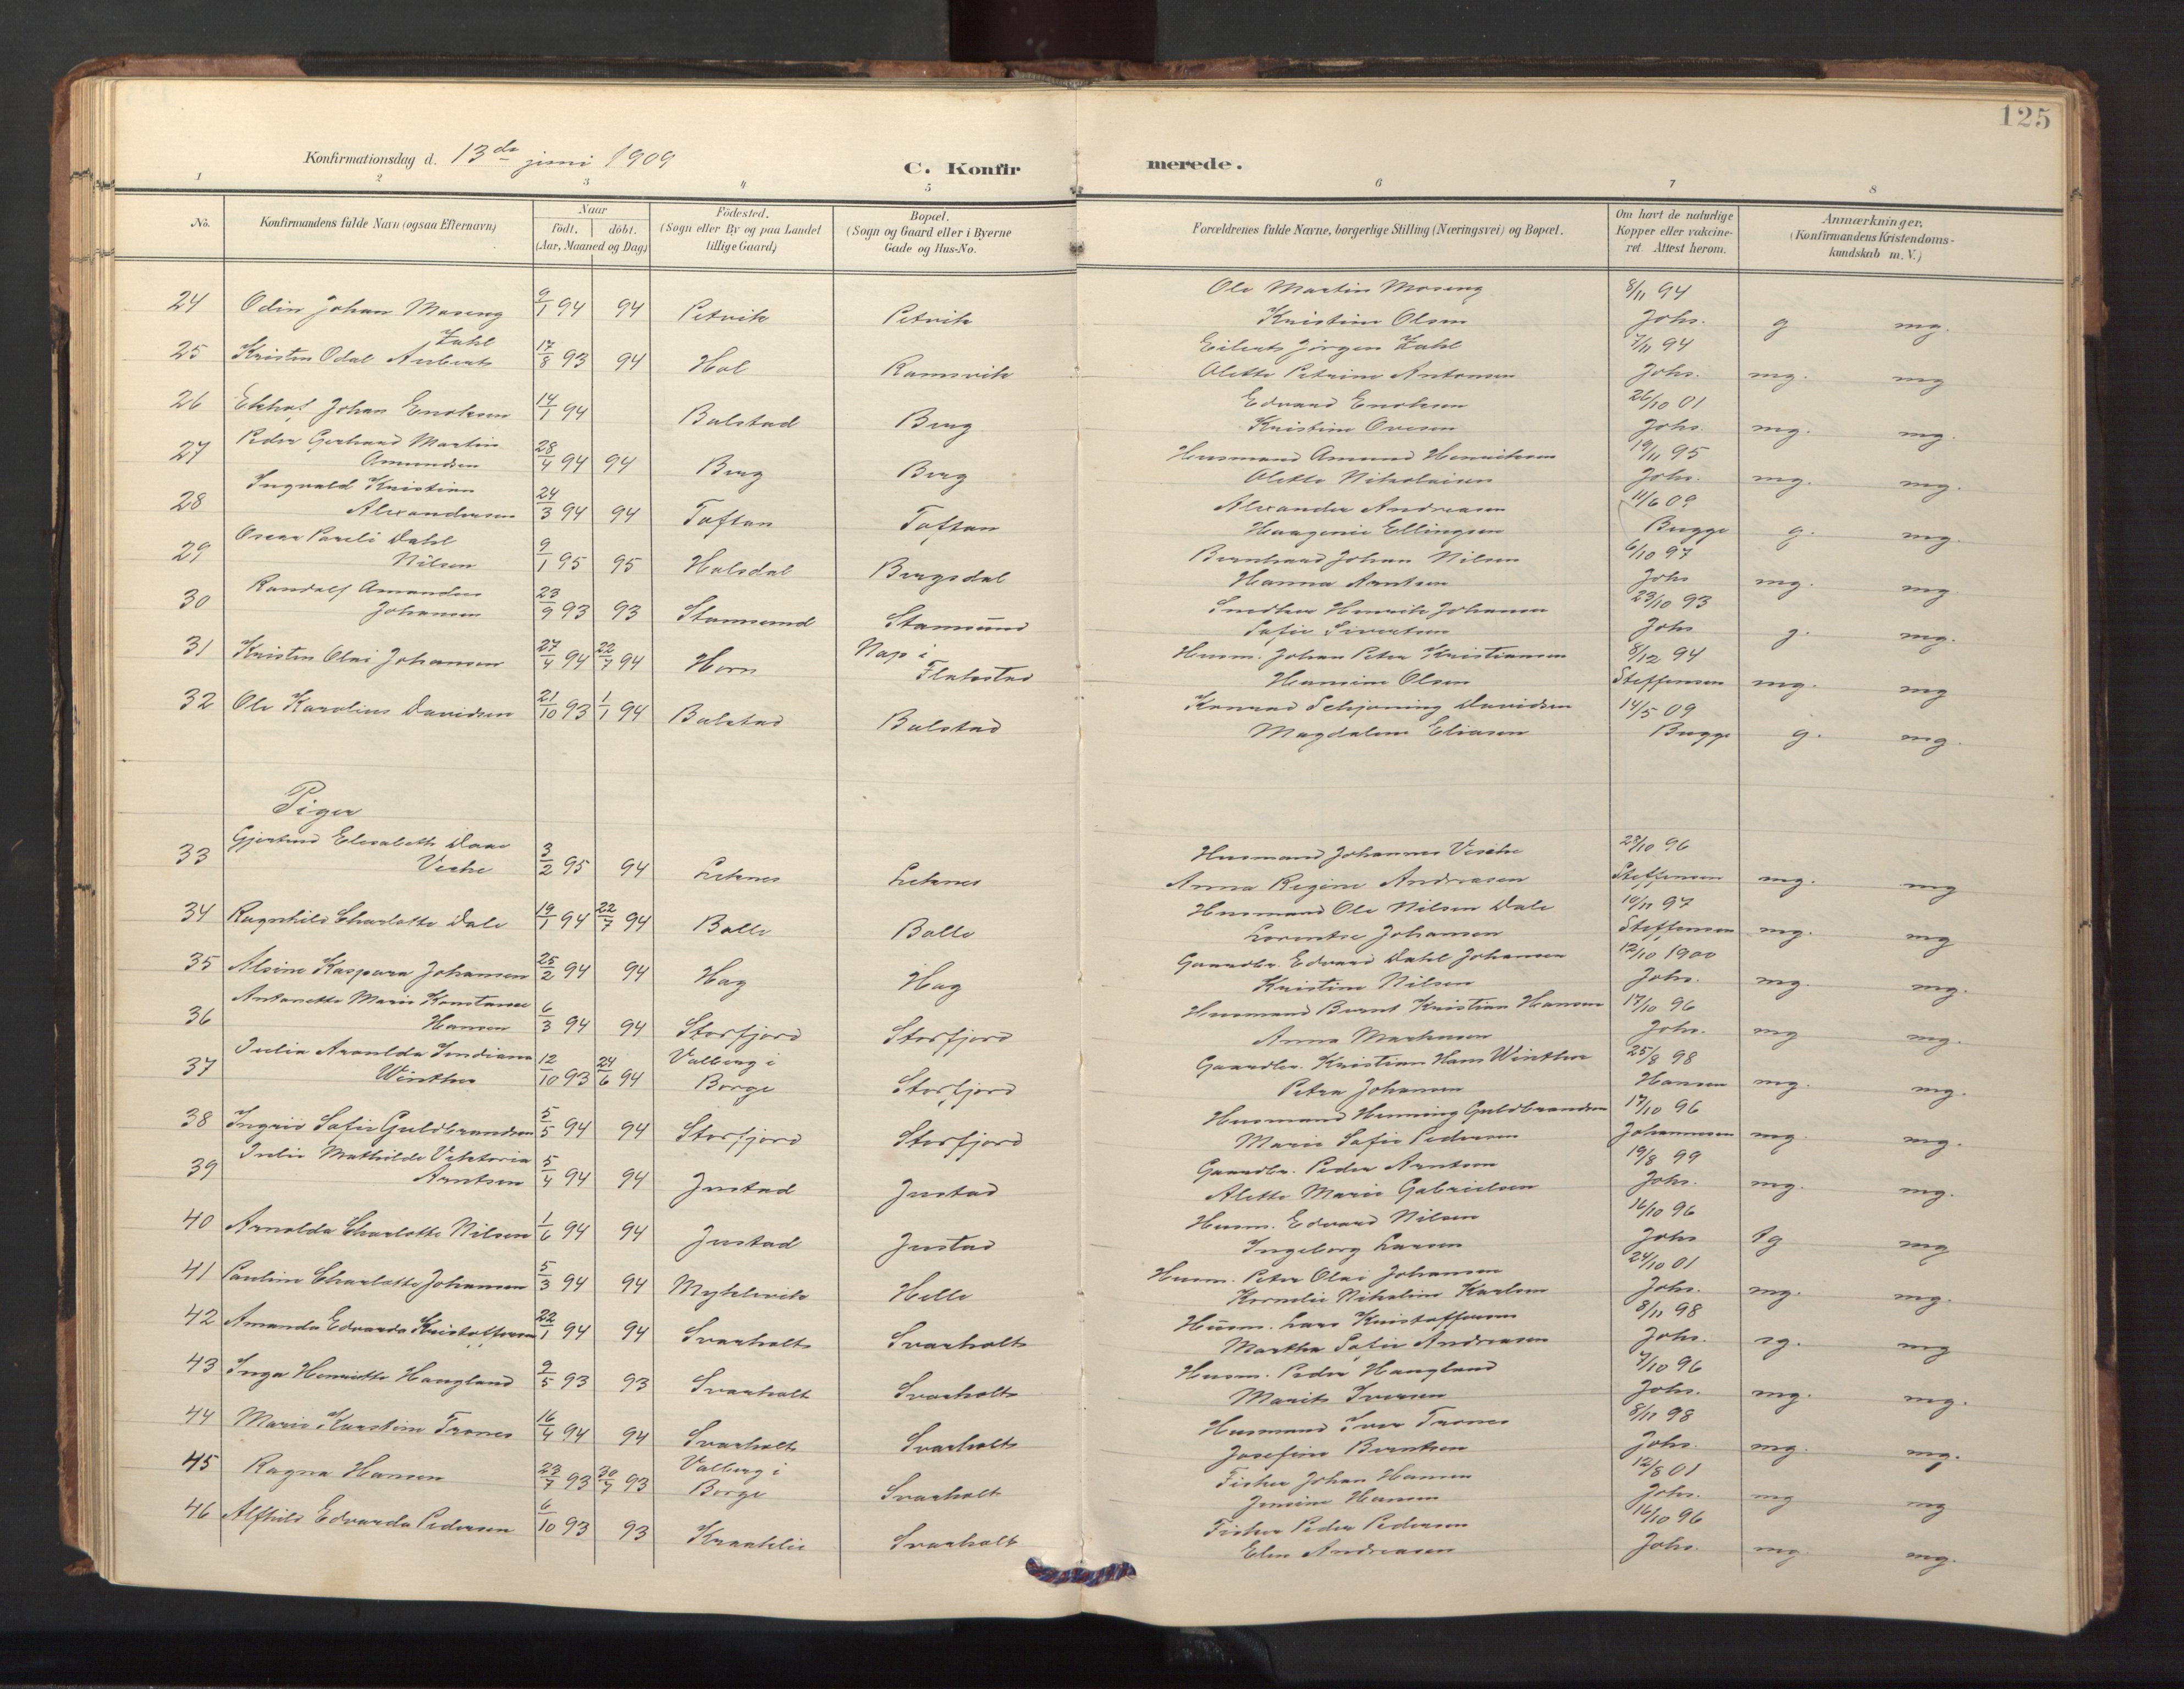 125
Konfirmationsdag d. 13de juni 1909
C. Konfirmerede.
1 2 3 4 5 6 7 8
No. Konfirmandens fulde Navn (ogsaa Efternavn) Naar født. døbt. (Aar, Maaned og Dag) Fødested. (Sogn eller By og paa Landet tillige Gaard) Bopæl. (Sogn og Gaard eller i Byerne Gade og Hus-No. Forældrenes fulde Navne, borgerlige Stilling (Næringsvei) og Bopæl. Om havt de naturlige Kopper eller vakcineret Attest herom. Anmærkninger. (Konfirmandens Kristendomskundskab m.V.)
24 Odin Johan Moseng 9/1 94 94 Petvik Petvik Ole Martin Moseng 8/11 94
Kristine Olsen Johs. g mg.
25 Kristen Odal Aubert Zahl 17/8 93 94 Hol Ramsvik Eilert Jørgen Zahl 7/11 94
Olette Petrine Antonsen Johs. mg. mg
26 Johan Enoksen 14/1 94 Balstad Berg Edvard Enoksen 26/10 01
Kristine Ovesen Johs. mg. mg.
27 Peder Gerhard Martin Amundsen 28/4 94 94 Berg Berg Husmand Amund Henriksen 19/11 95
Olette Nikolaisen Johs. mg. mg.
28 Ingvald Kristian Alexandersen 24/3 94 94 Toftan Toftan Alexander Andreasen 11/6 09
Haagenie Ellingsen Bugge g. mg.
29 Oscar Pareli Dahl Nilsen 9/1 95 95 Holsdal Bergsdal Bernhard Johan Nilsen 6/10 97
Hanna Arntsen Johs mg. mg
30 Randolf Amandus Johansen 23/9 93 93 Stamsund Stamsund Henrik Johansen 23/10 93
Sofie Sivertsen Johs g. mg.
31 Kristen Olai Johansen 27/4 94 22/7 94 Horn Nap i Flakstad Husm. Johan Peter Kristiansen 8/12 94
Hansine Olsen Steffensen mg. mg
32 Ole Karolius Davidsen 21/10 93 1/1 94 Balstad Balstad Konrad Schjøning Davidsen 14/5 09
Magdalene Eliasen Bugge g. mg.
Piger
33 Gjertrud Elisabeth Daae Veche 3/2 95 94 Leknes Leknes Husmand Johannes Veche 23/10 96
Anna Regine Andreasen Steffensen mg. mg
34 Ragnhild Charlotte Dale 19/1 94 22/7 94 Balle Balle Husmand Ole Nilsen Dale 10/11 97
Lorentse Johansen Steffensen mg. mg
35 Alsine Kaspara Johansen 25/2 94 94 Hag Hag Gaardbr. Edvard Dahl Johansen 12/10 1900
Kristine Nilsen Johs. mg. mg.
36 Antonette Marie Konstanse Hansen 6/3 94 94 Storfjord Storfjord Husmand Bernt Kristian Hansen 17/10 96
Anna Markusen Johs. mg mg.
37 Julie Arnulda Indiana Winther 12/10 93 24/6 94 Valberg i Borge Storfjord Gaardbr. Kristian Hans Winther 25/8 98
Petra Johansen Hansen mg. mg.
38 Ingrid Sofie Guldbrandsen 5/5 94 94 Storfjord Storfjord Husmand Henning Guldbrandsen 17/10 96
Marie Sofie Pedersen Johannesen mg. mg.
39 Julie Mathilde Viktoria Arntsen 5/4 94 94 Justad Justad Gaardbr. Peder Arntsen 19/8 99
Alette Marie Gabrielsen Johs. mg. mg.
40 Arnolda Charlotte Nilsen 1/6 94 94 Justad Justad Husm. Edvard Nilsen 16/10 96
Ingeborg Larsen Johs tg mg
41 Pauline Charlotte Johansen 5/3 94 94 Myklevik Helle Husm. Peter Olai Johansen 24/10 01
Kornelie Nikoline Karlsen Johs. mg. mg.
42 Amanda Edvarda Kristoffersen 22/1 94 94 Svarholt Svarholt Husm. Lars Kristoffersen 8/11 98
Martha Sofie Andreasen Johs. sg. mg
43 Inga Henriette Haugland 9/5 93 93 Svarholt Svarholt Husm. Peder Haugland 7/10 96
Marit Iversen Johs. mg. mg.
44 Marie Kirstine Trones 16/4 94 94 Svarholt Svarholt Husmand Iver Trones 8/11 98
Josefine Berntsen Johs. mg. mg.
45 Ragna Hansen 23/7 93 30/7 93 Valberg i Borge Svarholt Fisker Johan Hansen 12/8 01
Jensine Hansen Johs. mg mg
46 Alfhild Edvarda Pedersen 6/10 93 93 Kraaklie Svarholt Fisker Peder Pedersen 16/10 96
Elen Andreasen Johs. mg. mg.